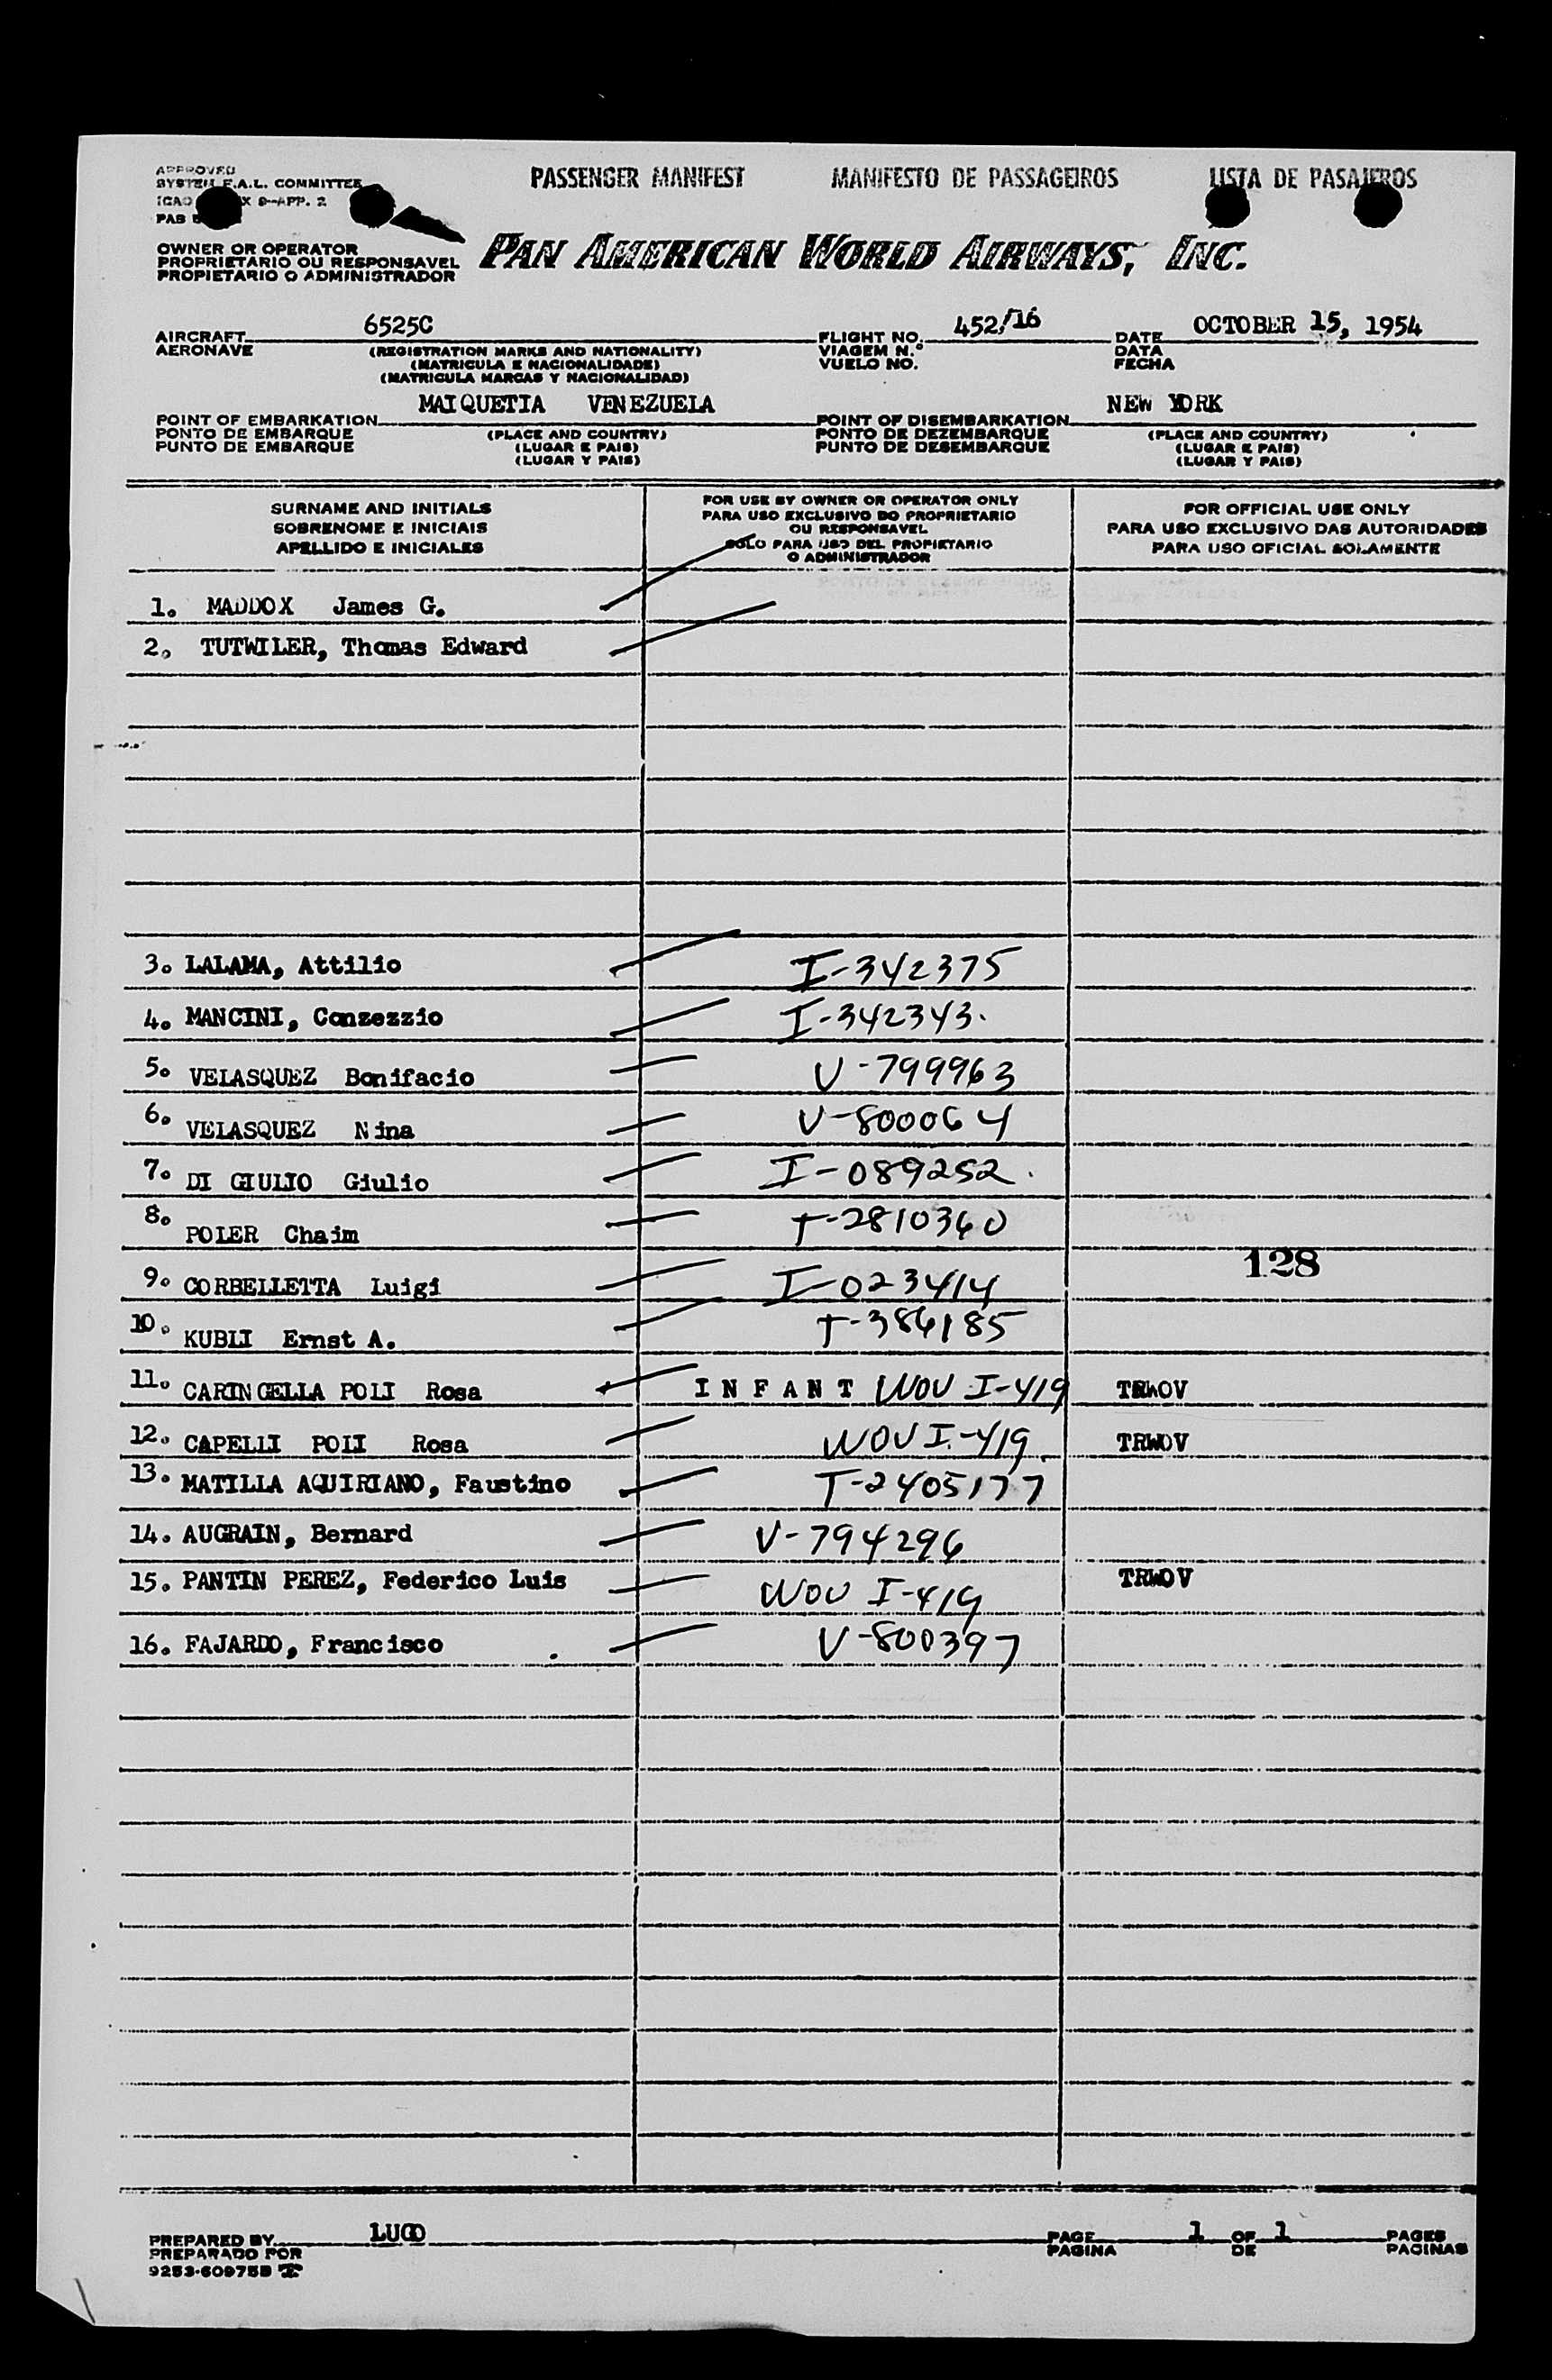 APPROVED
SYSTEM F.A.L. COMMITTEE
ICAO X 9-APP. 2
PAB
PASSENGER MANIFEST MANIFESTO DE PASSAGEIROS LISTA DE PASAJEROS
OWNER OR OPERATOR
PROPRIETARIO OU RESPONSAVEL
PROPIETARIO O ADMINISTRADOR
PAN AMERICAN WORLD AIRWAYS, INC.
AIRCRAFT 6525C FLIGHT NO. 452/16 DATE OCTOBER 15, 1954
AERONAVE (REGISTRATION MARKS AND NATIONALITY) VIAGEM N.º DATA
(MATRICULA E NACIONALIDADE) VUELO NO. FECHA
(MATRICULA MARCAS Y NACIONALIDAD)
POINT OF EMBARKATION MAIQUETIA VENEZUELA POINT OF DISEMBARKATION NEW YORK
PONTO DE EMBARQUE (PLACE AND COUNTRY) PONTO DE DEZEMBARQUE (PLACE AND COUNTRY)
PUNTO DE EMBARQUE (LUGAR E PAIS) PUNTO DE DESEMBARQUE (LUGAR E PAIS)
(LUGAR Y PAIS) (LUGAR Y PAIS)
SURNAME AND INITIALS
SOBRENOME E INICIAIS
APELLIDO E INICIALES
FOR USE BY OWNER OR OPERATOR ONLY
PARA USO EXCLUSIVO DO PROPRIETARIO
OU RESPONSAVEL
SOLO PARA USO DEL PROPIETARIO
O ADMINISTRADOR
FOR OFFICIAL USE ONLY
PARA USO EXCLUSIVO DAS AUTORIDADES
PARA USO OFICIAL SOLAMENTE
1. MADDOX James G.
2. TUTWILER, Thomas Edward
3. LALAMA, Attilio I-342375
4. MANCINI, Conzezzio I-342343.
5. VELASQUEZ Bonifacio V-799963
6. VELASQUEZ Nina V-800064
7. DI GIULIO Giulio I-089252.
8. POLER Chaim T-2810360
128
9. CORBELLETTA Luigi I-023414
10. KUBLI Ernst A. T-386185
11. CARINGELLA POLI Rosa INFANT WOV I-419 TRWOV
12. CAPELLI POLI Rosa WOV I-419 TRWOV
13. MATILLA AQUIRIANO, Faustino T-2405177
14. AUGRAIN, Bernard V-794296
15. PANTIN PEREZ, Federico Luis WOV I-419 TRWOV
16. FAJARDO, Francisco V-800397
PREPARED BY LUGO PAGE 1 OF 1 PAGES
PREPARADO POR PAGINA DE PAGINAS
9253-60975B